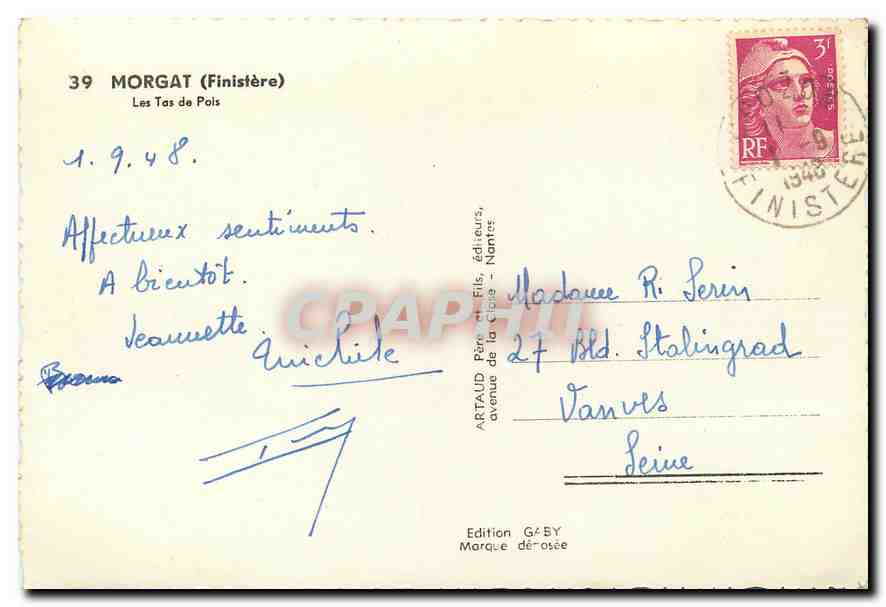 39 MORGAT (Finistère)
Les Tas de Pois
1.9.48.
Affectueux sentiments.
A bientôt.
Jeannette.
Michèle
ARTAUD Père et Fils, éditeurs,
avenue de la Close - Nantes
Madame R. Serin
27 Bld. Stalingrad
Vanves
Seine
Edition GABY
Marque déposée
3F
POSTES
RF
-9
1948
FINISTERE
CPAPHIL